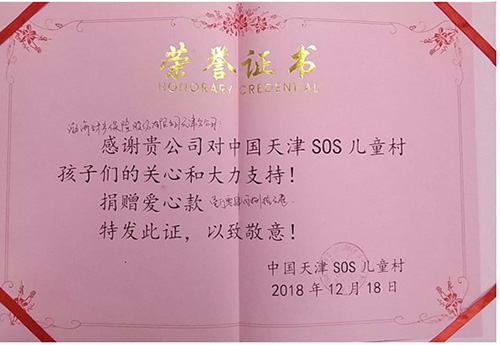 荣誉证书
HONORARY CREDENTIAL
财产保险股份有限公司天津分公司:
感谢贵公司对中国天津SOS儿童村
孩子们的关心和大力支持!
捐赠爱心款
特发此证,以致敬意!
中国天津SOS儿童村
2018年12月18日